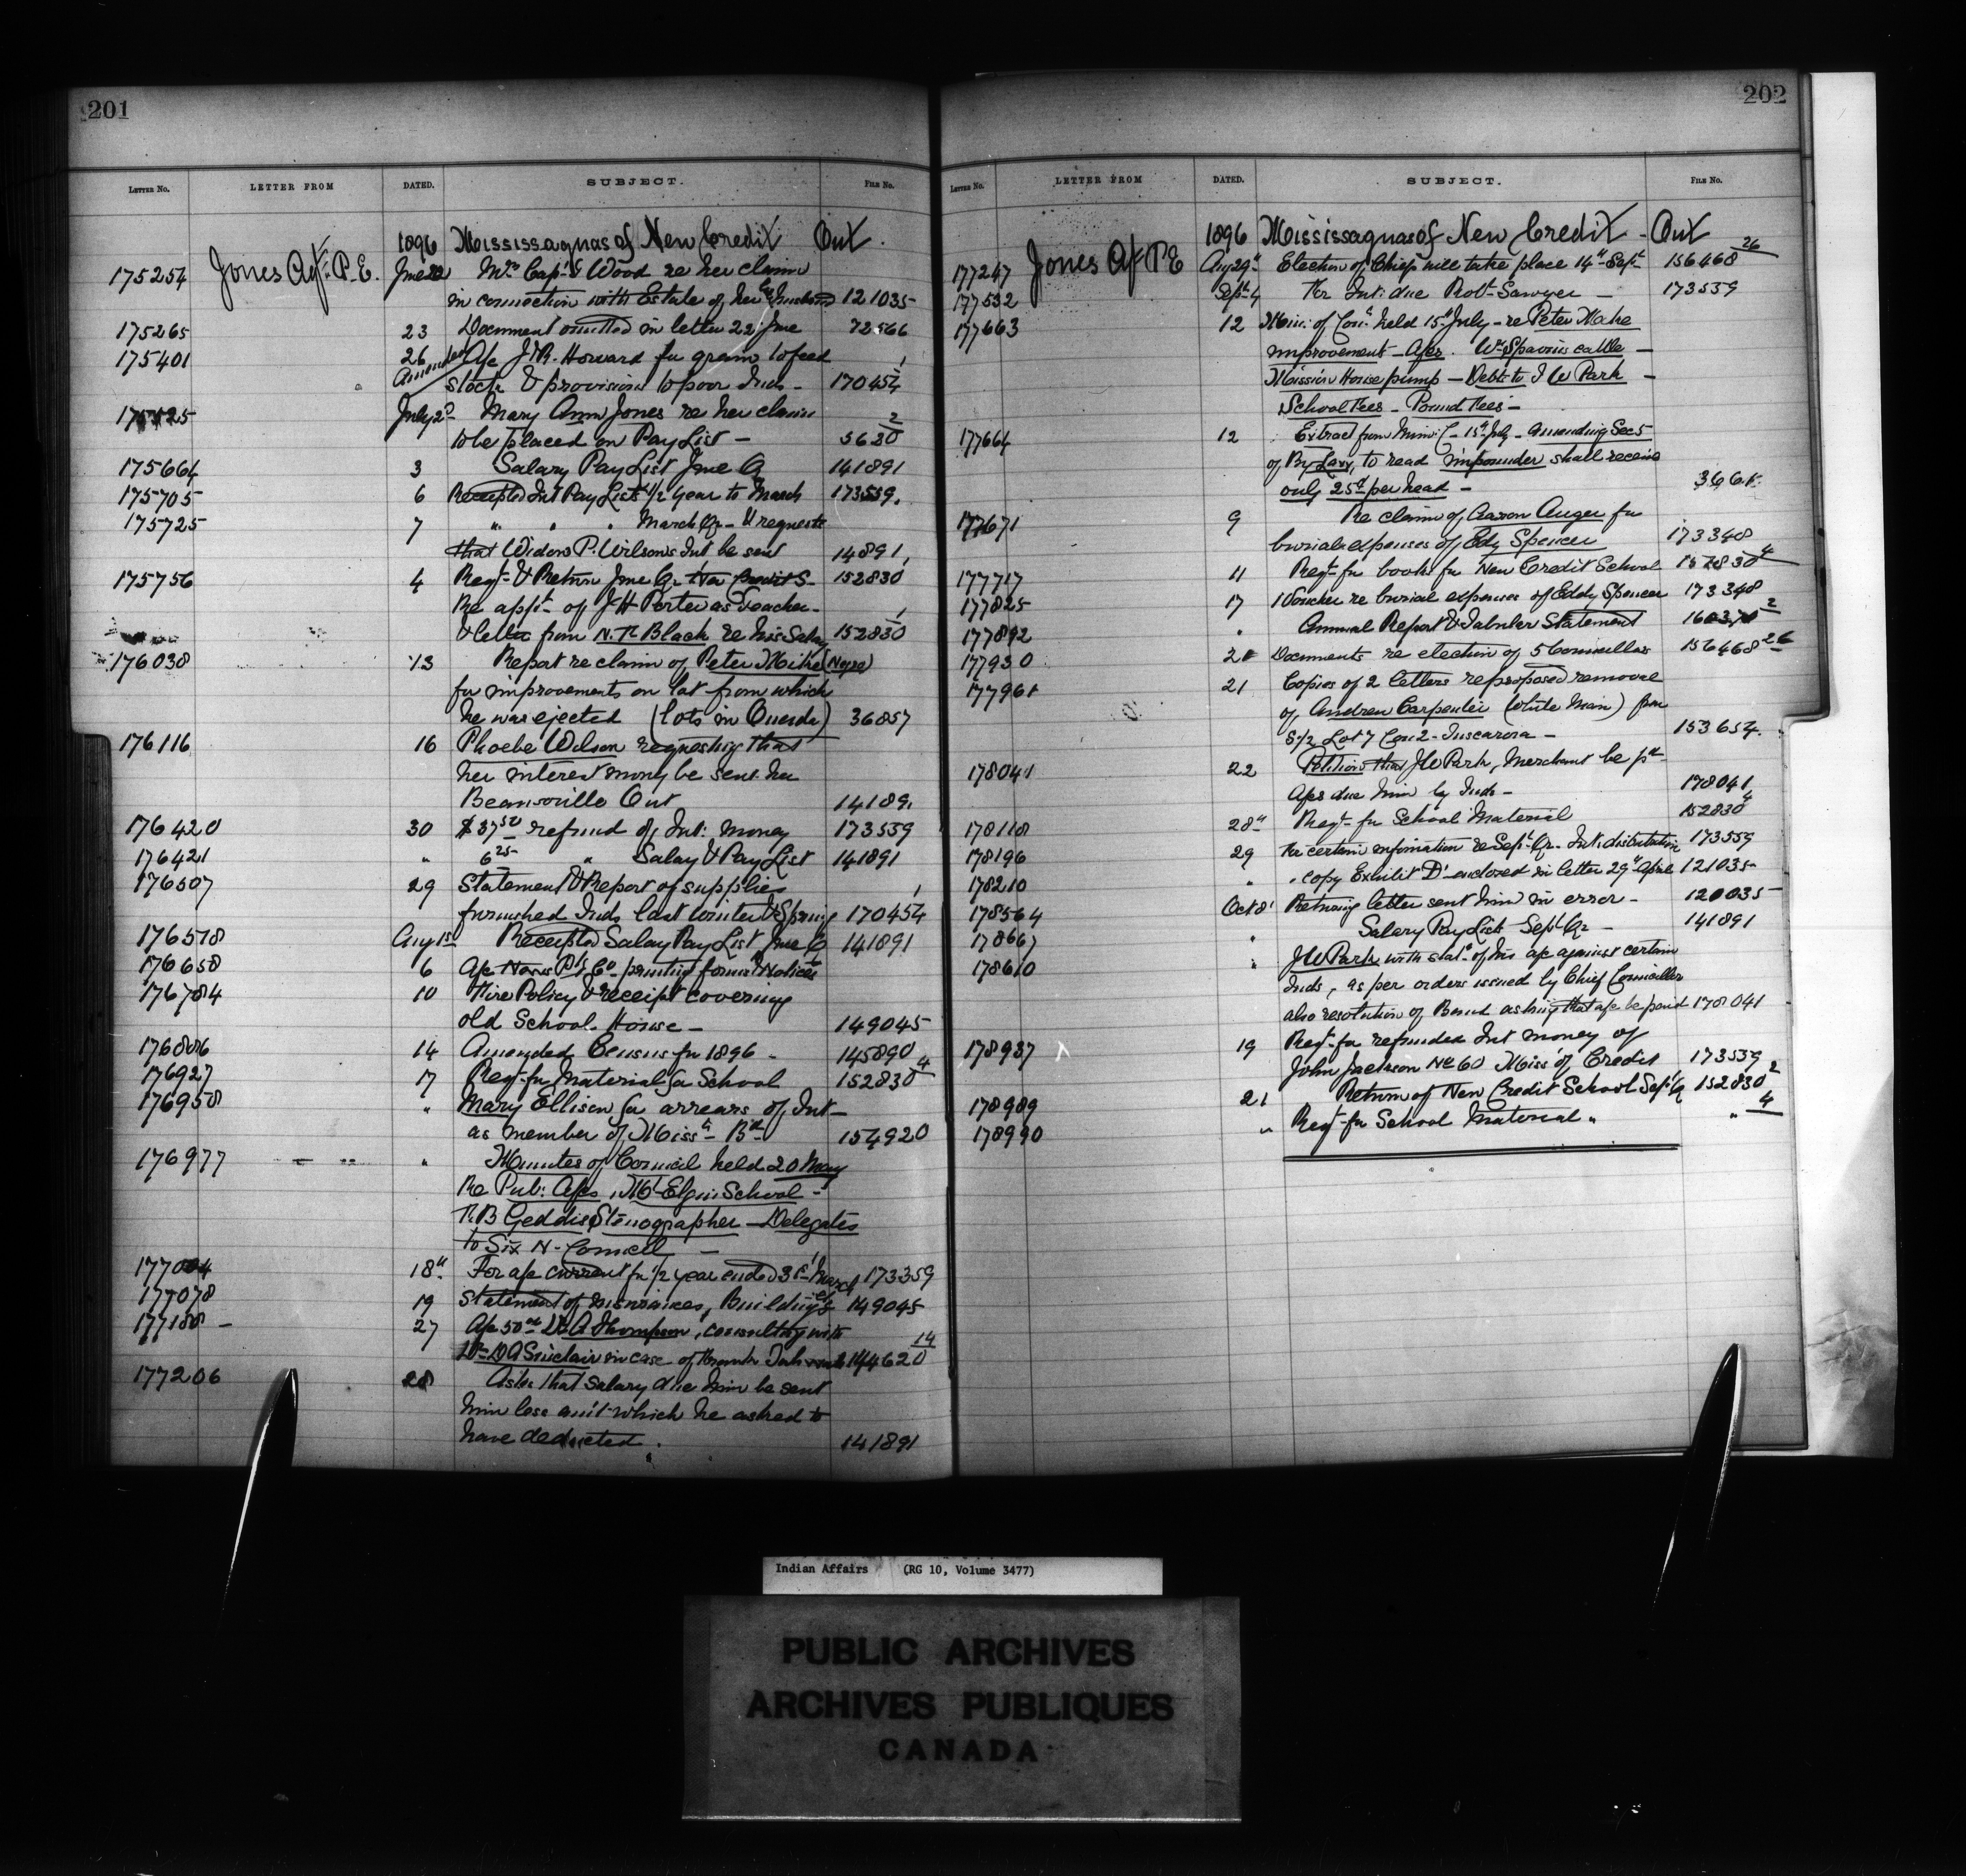 201
LETTER No. LETTER FROM DATED. SUBJECT. FILE No.
1896 Mississaguas of New Credit Ont.
175254 Jones Agt. P. E. June 22 Mrs Capt Wood re her claim
in connection with Estate of her husband 121035
175265 23 Document omitted in letter 22 June 72566
175401 26 a/c J.R. Howard for grain to feed
Amended stock & provisions to poor Inds - 170454 1
July 2d Mary Ann Jones re her claim
to be placed on Pay List - 5630 2
175664 3 Salary Pay List June Q 141891
175705 6 Receipted Int Pay Lists 1/2 year to March 173559.
175725 7 " " " March Qr - & requests
that Widow P. Wilson's Int be sent 14891,
175756 4 Reqt. & Return June Qr New Credit S- 152830
Re appt. of J H Porter as Teacher -
& letter from N. R. Black re his Salary 152830 1
176038 13 Report re claim of Peter Mike (Negro)
for improvements on lot from which
he was ejected (lots in Oneida) 36857
176116 16 Phoebe Wilson requesting that
her interest money be sent her
Beamsville Ont 14189,
176420 30 $37 50 refund of Int: money 173559
176421 " 6 25 " Salary & Pay List 141891
176507 29 Statement & Report of supplies
furnished Inds last winter & Spring 170454 1
176578 Aug 1st Receipted Salary Pay List June Q 141891
176658 6 a/c Norris P. & Co. printing forms & Notices
176784 10 Fire Policy & receipt covering
old School House - 149045
176806 14 Amended Census for 1896 - 145890
176927 17 Reqt. for Material for School 152830 4
176958 " Mary Ellison for arrears of Int -
as member of Missa Bd 154920
176977 " Minutes of Council held 20 May
Re Pub: a/cs, Mt Elgin School -
R. B Geddes Stenographer - Delegates
to Six N - Council -
177004 18th For a/c current for 1/2 year ended 31st March 173359
177078 19 Statement of Insurances, Buildings 149045
177180 - 27 a/c 50 00 Dr A Thompson, consulting with
Dr D A Sinclair in case of 144620 14
177206 28 Asks that salary due him be sent
him less amt which he asked to
have deducted. 141891
202
LETTER No. LETTER FROM DATED. SUBJECT. FILE No.
1896 Mississaguas of New Credit - Ont
177247 Jones Agt P E Aug 29th Election of Chiefs will take place 14th Sept 156468 26
177532 Sept 4 For Int: due Robt Sawyer - 173559
177663 12 Min: of Coun. held 15th July - re Peter Mike
improvement - a/cs. Wm Spavins cattle -
Mission House pump - Debts to J W Park -
School Fees - Pound Fees -
177664 12 Extract from Min: C - 15th July - amending Sec 5
of By Law, to read impounder shall receive
only 25 cts per head - 3661.
177671 9 Re claim of Aaron Auger for
burial expenses of Edy Spencer 173348
177717 11 Reqt - for books for New Credit School 152830 4
177825 17 1 Voucher re burial expenses of Eddy Spencer 173348
177892 " Annual Report & Tabular Statement 160370 2
177930 21 Documents re election of 5 Councillors 156468 26
177961 21 Copies of 2 letters re proposed removal
of Andrew Carpenter (White Man) from
S 1/2 Lot 7 Con 2 - Tuscarora - 153654.
178041 22 Petition that J W Park, Merchant be pd
a/cs due him by Inds - 178041
178118 28th Reqt - for School Material 152830 4
178196 29 For certain information re Sept Qr - Int: distribution 173559
178210 " Copy Exhibit D' enclosed in letter 29th April 121035
178564 Oct 8' Returning letter sent him in error - 120035
178667 " Salary Pay List Sept Qr - 141891
178610 " J W Park with stat. of his a/c against certain
Inds, as per orders issued by Chief Councillor
also resolution of Band asking that a/c be paid 178041
178937 19 Reqt - for refunded Int money of
John Jackson No 60 Miss of Credit 173559
178989 21 Return of New Credit School Sept Q 152830 2
178990 " Reqt - for School Material " " 4
Indian Affairs (RG 10, Volume 3477)
PUBLIC ARCHIVES
ARCHIVES PUBLIQUES
CANADA